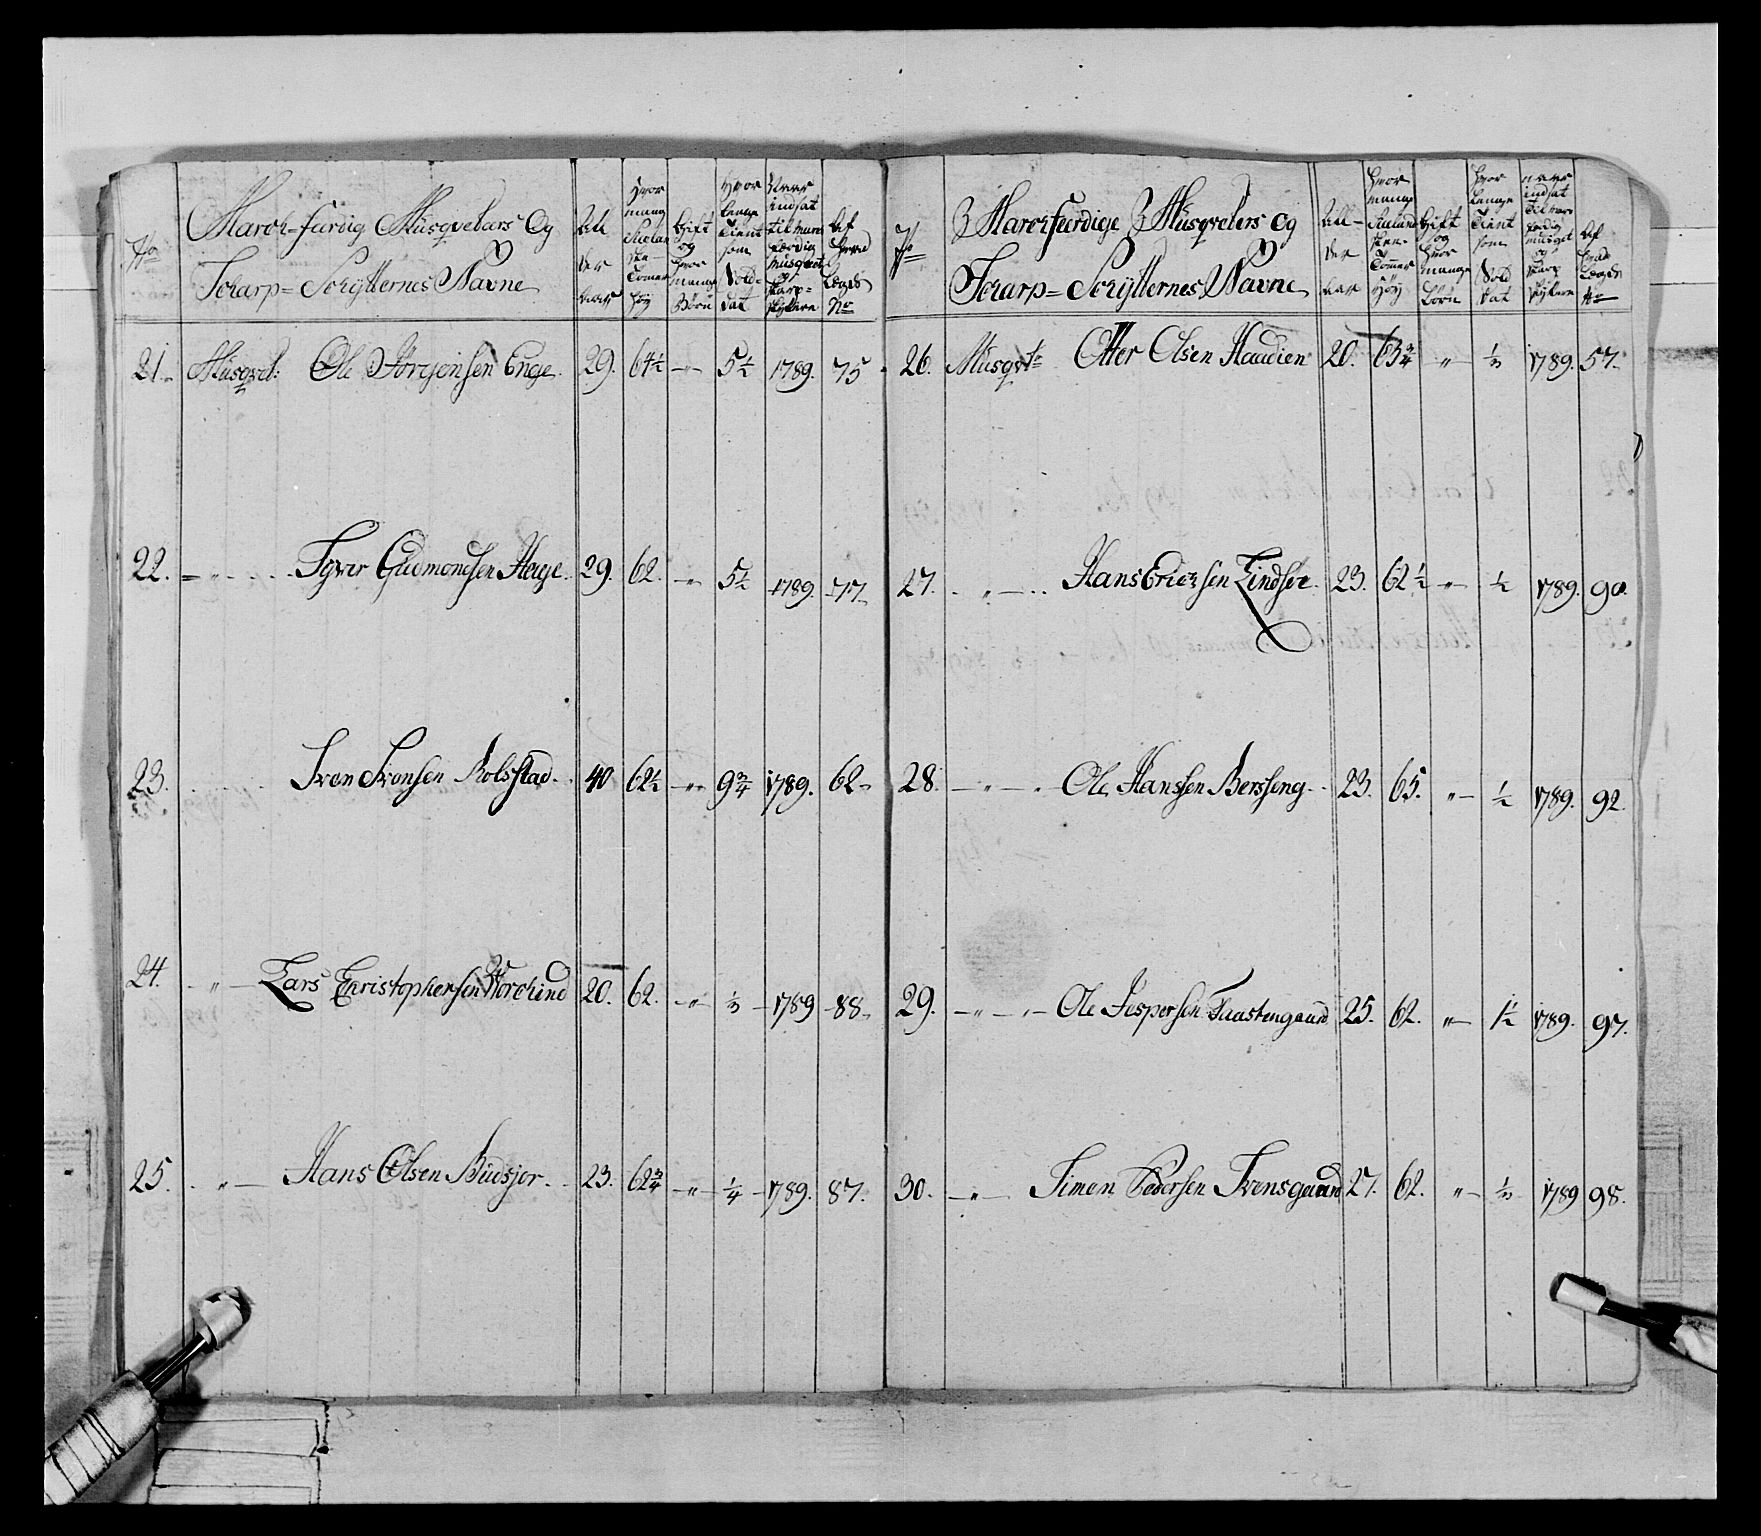 No March-færdig Musqveteers Og Scharp-Schytternes Navne | Alder Aar | Hvor mange Siælandske Tommer høy | Gift og hvor mange Børn | Hvor lenge Tient som Soldat | Naar indsat til march færdig Musqvet og skarp-skytere | Af hvad Lægds No
21. Musqvet: Ole Jörgensen Enge. 29. 64½ - " - 5½ 1789. 75
22. - " - Syver Gudmondsen Hage. 29. 62. - " - 5½ 1789. 77.
23. Sven Svensen Rolsstad. 40 62½ - " - 9¾ 1789. 62.
24. - " - Lars Christophersen Horchind 20. 62. - " - ½ 1789 88.
25. - " - Hans Olsen Budsjor. 23. 62¾ - " - ¼ 1789. 87.
No March færdige Musqveters og Scharp-Schytternes Navne | Alder Aar | Hvor mange Siælandsken Tommer Høy | Gift og Hvor mange Børn | Hvor lenge Tient som Soldat | naar indsat til march færdig musqet og skarp skytere | Af hvad Lægds No
26. Musqvt Otter Olsen Haadien 20. 63¾ " ½ 1789. 57.
27. - " - Hans Erichsen Lindsøe. 23. 62½ " ½ 1789. 90.
28. - " - Ole Hanssen Bersseng. 23. 65. " - ½ 1789. 92.
29. - " - " - Ole Jespersen Taastengaard 25. 62. " - 1½ 1789. 97.
30. - " - Simen Pedersen Svensgaard 27. 62. " - ½ 1789 98.